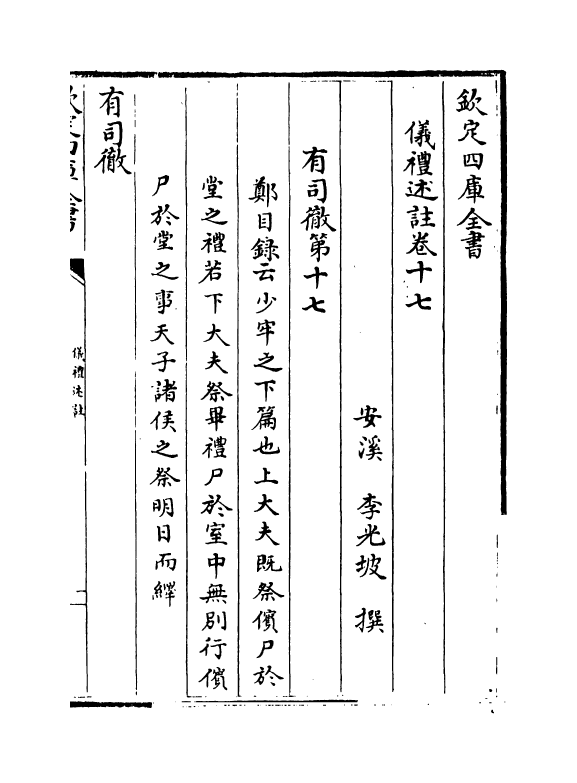 欽定四庫全書
儀禮述註卷十七
安溪 李光坡 撰
有司徹第十七
鄭目錄云少牢之下篇也上大夫既祭儐尸於
堂之禮若下大夫祭畢禮尸於室中無別行儐
尸於堂之事天子諸侯之祭明日而繹
有司徹
欽定四庫全書
儀禮述註